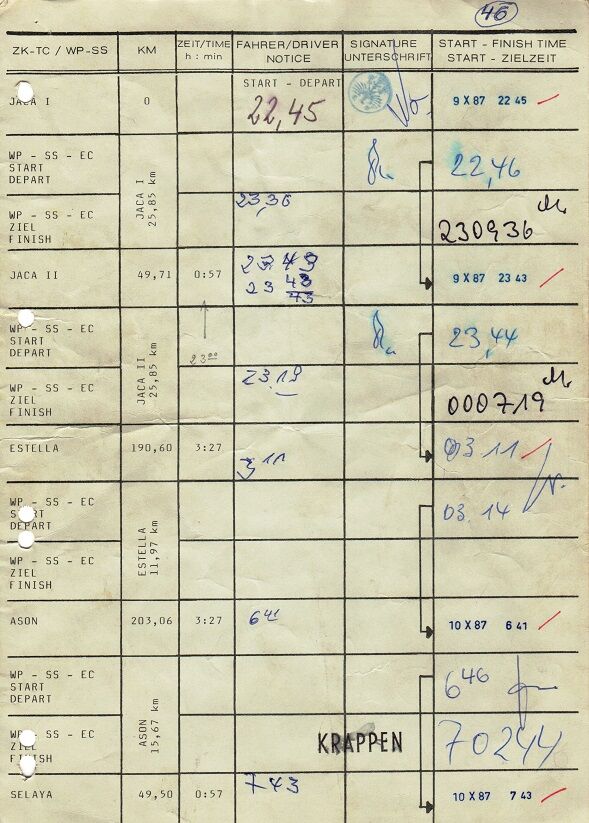 46
ZK-TC / WP-SS KM ZEIT/TIME h : min FAHRER/DRIVER NOTICE SIGNATURE UNTERSCHRIFT START - FINISH TIME START - ZIELZEIT
START - DEPART
JACA I 0 22,45 9 X 87 22 45
WP - SS - EC
START
DEPART
22,46
JACA I
25,85 km
WP - SS - EC
ZIEL
FINISH
23,36
230936
JACA II 49,71 0:57 23 43 9 X 87 23 43
23 43
43
WP - SS - EC
START
DEPART
23,44
23⁰⁰
JACA II
25,85 km
WP - SS - EC
ZIEL
FINISH
23.19
000719
ESTELLA 190,60 3:27 3¹¹ 03 11
WP - SS - EC
DEPART
03.14
ESTELLA
11,97 km
WP - SS - EC
ZIEL
FINISH
ASON 203,06 3:27 6⁴¹ 10 X 87 6 41
WP - SS - EC
START
DEPART
6⁴⁶
ASON
15,67 km
WP - SS - EC
KRAPPEN
70244
SELAYA 49,50 0:57 743 10 X 87 7 43